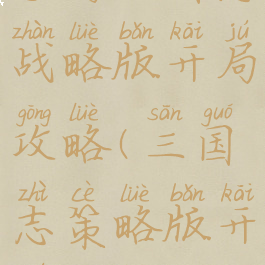 zhàn lüè bǎn kāi jú
战略版开局
gōng lüè sān guó
攻略(三国
zhì cè lüè bǎn kāi
志策略版开